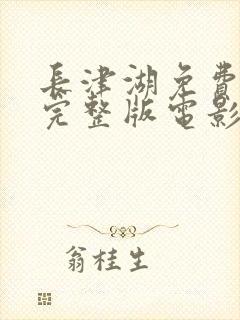 長津湖免費
完整版電影
翁桂生